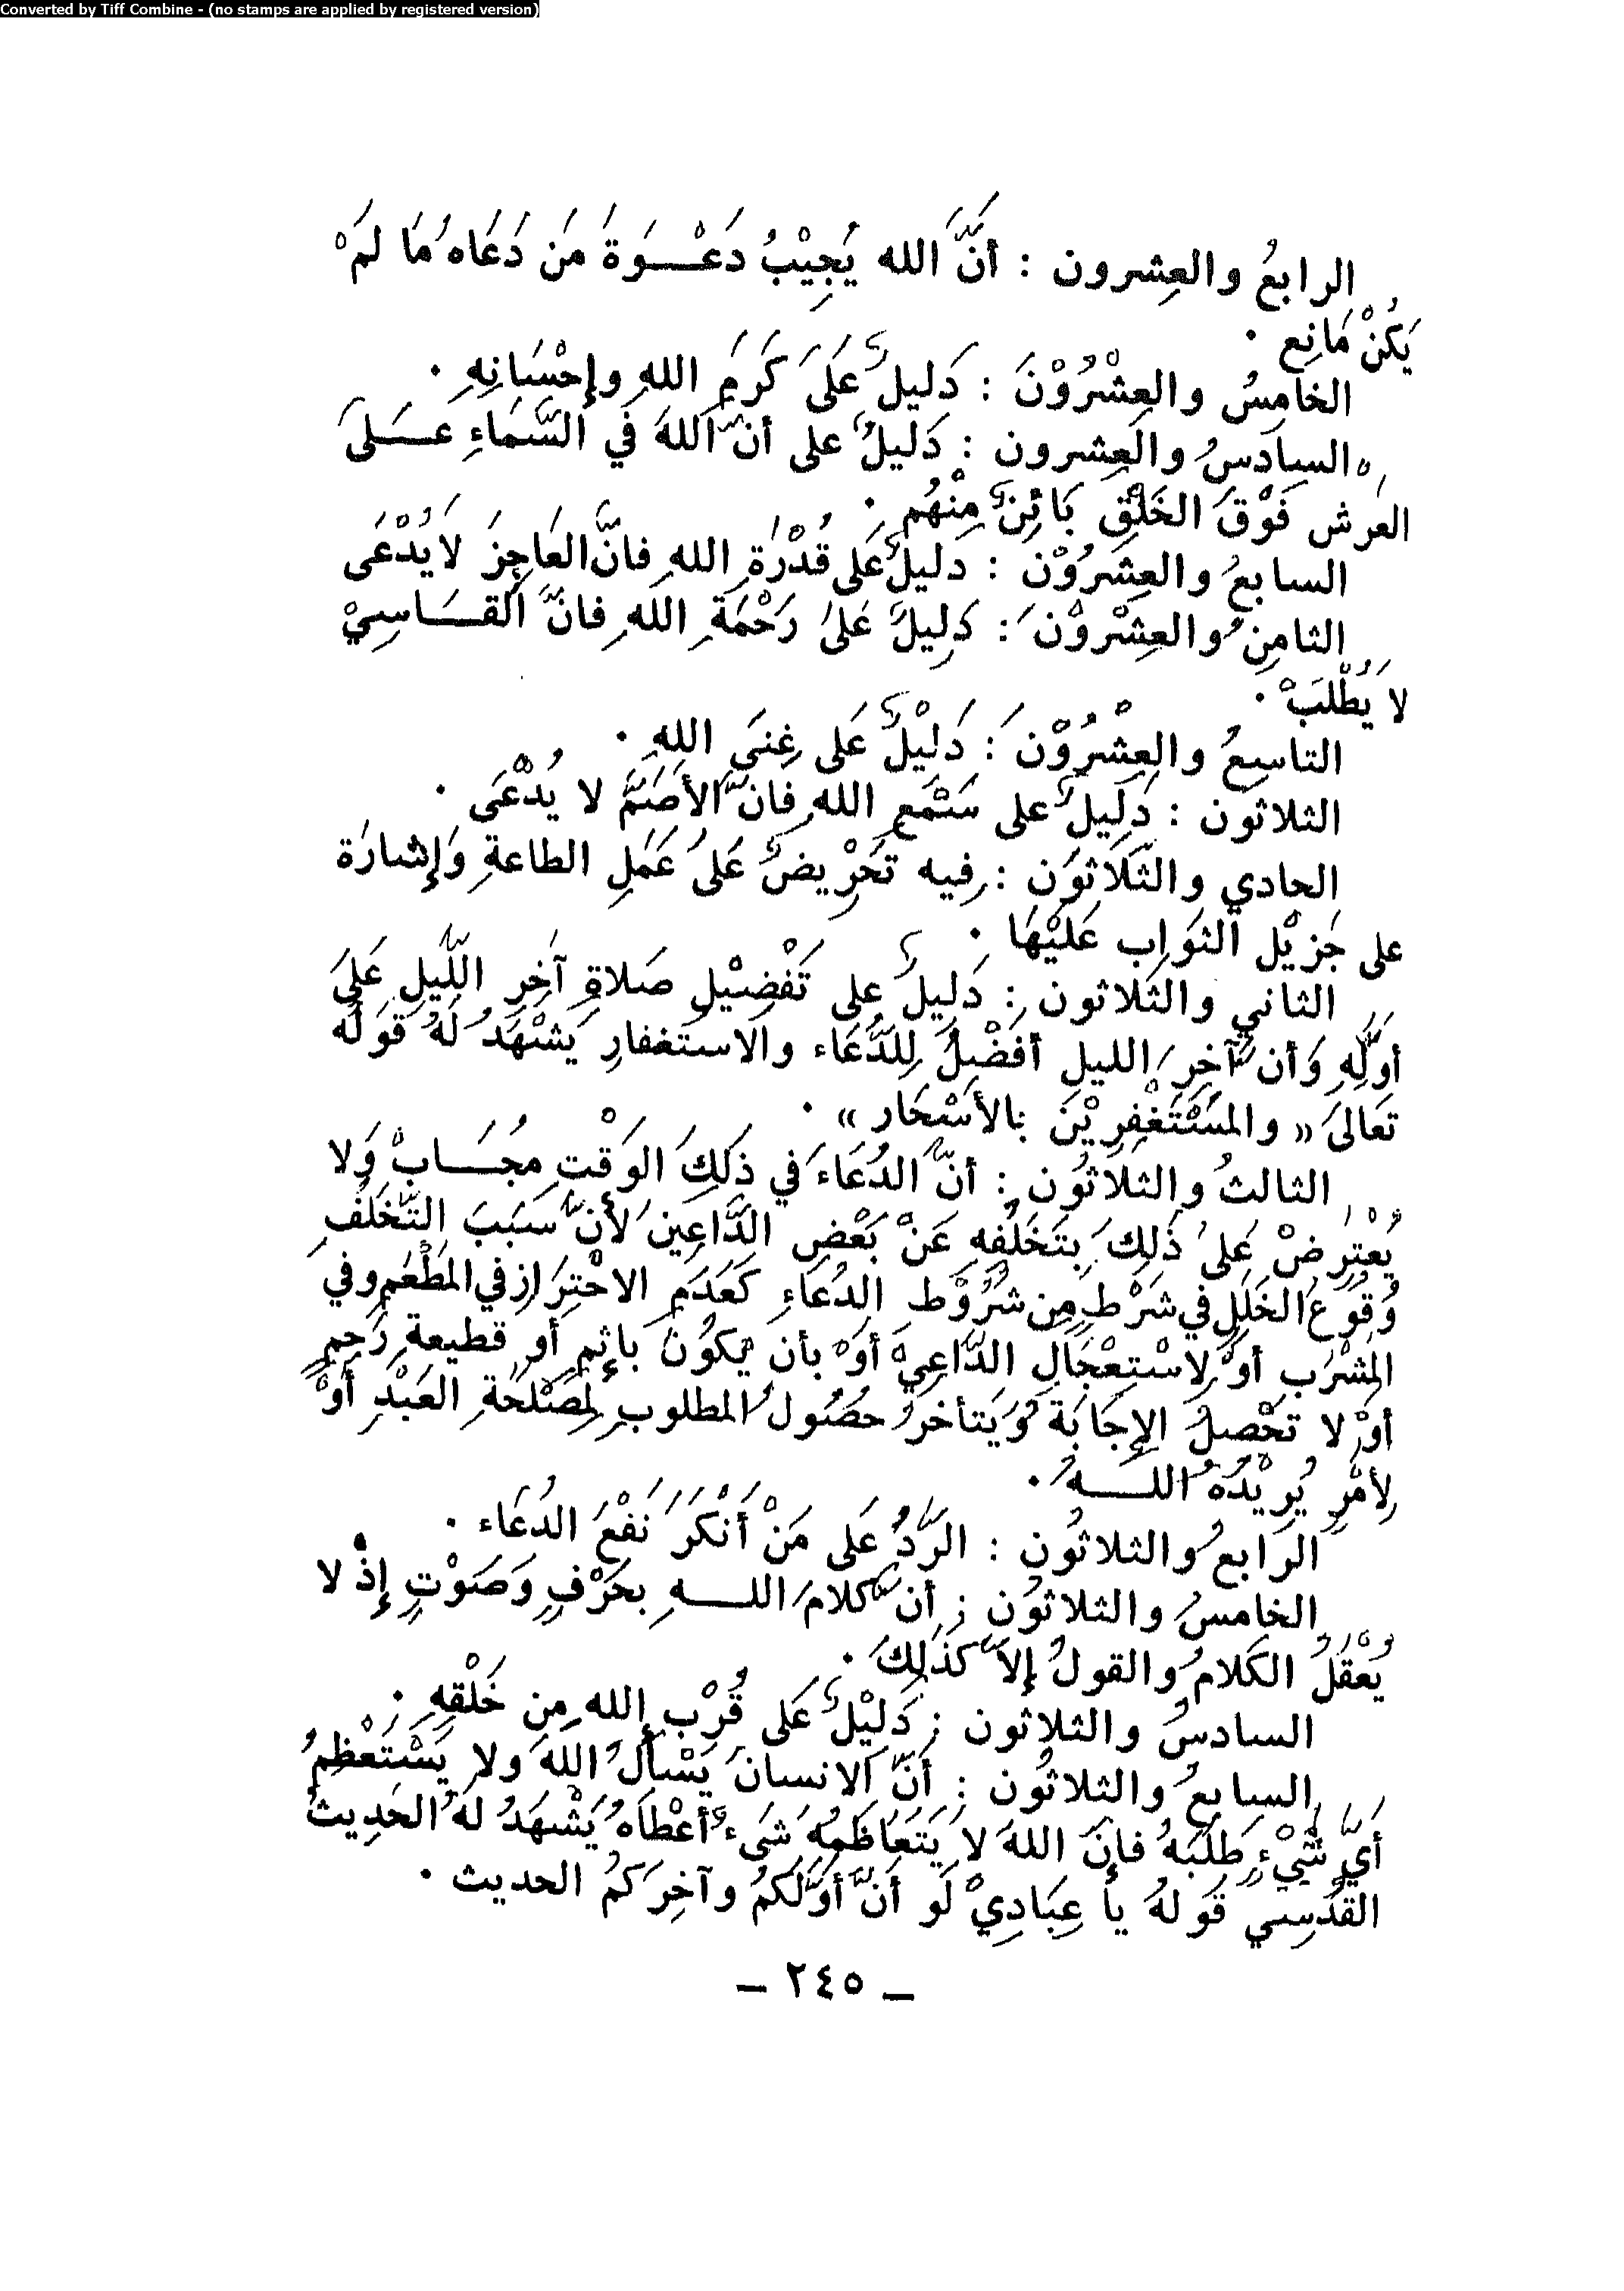 Converted by Tiff Combine - (no stamps are applied by registered version)
الرابعُ والعِشرون : أنَّ الله يُجِيْبُ دَعْـوَةَ مَن دَعَاهُ مَا لَمْ
يَكُنْ مَانِع .
الخامِسُ والعِشْرُوْنَ : دَليلٌ عَلَى كَرَمِ اللهِ وإحْسَانِهِ .
السادسُ والعِشرون : دَليلٌ على أنَّ اللهَ في السَّمَاءِ عَـلَى
العَرش فَوْقَ الخَلْقِ بَائِنٌ مِنْهُم .
السابعُ والعِشرُوْن : دليلٌ عَلى قُدْرَةِ اللهِ فانَّ العَاجِزَ لا يُدْعَى
الثامنُ والعِشْرُوْنَ : دَلِيلٌ عَلَى رَحْمَةِ اللهِ فانَّ القَـاسِيْ
لا يُطْلَبْ .
التاسِعُ والعِشْرُوْنَ : دَلِيْلٌ عَلى غِنَى اللهِ .
الثلاثون : دَلِيلٌ على سَمْعِ اللهِ فانَّ الأصَمَّ لا يُدْعَى .
الحادي والثَّلاثُون : فِيه تَحْرِيضٌ عَلَى عَمَلِ الطاعةِ وَإشارَة
على جَزِيْلِ الثَوَابِ عَلَيْهَا .
الثاني والثَلاثون : دَلِيلٌ على تَفْضِيْلِ صَلاةِ آخِرِ اللَّيلِ عَلَى
أوَّلِهِ وَأنَّ آخِرَ الليلِ أفْضَلُ لِلدُّعَاء والاستغفارِ يَشْهَدُ لَهُ قَولُه
تَعَالَى « والمُسْتَغْفِرِيْنَ بالأسْحَار » .
الثالثُ والثلاثُون : أنَّ الدُعَاءَ في ذَلِكَ الوَقْتِ مُجَـابٌ وَلا
يُعْتَرضُ عَلَى ذَلِكَ بِتَخَلُّفِهِ عَنْ بَعْضِ الدَّاعِين لأنَّ سَبَبَ التَّخَلُّفِ
وُقُوعُ الخَلَلِ في شَرْطٍ مِن شُرُوْطِ الدُعَاءِ كَعَدَمِ الاحْتِرَازِ في المَطْعَمِ وفي
المَشْرَبِ أوْ لاسْتِعْجَالِ الدَّاعِيْ أوْ بأن يَكُوْنَ بإثمٍ أو قطيعةِ رَحِمٍ
أوْ لا تَحْصلُ الإِجَابَةُ وَيَتأخرُ حصُولُ المطلوبِ لِمَصْلَحَةِ العَبْدِ أوْ
لِأمْرٍ يُرِيْدُهُ اللــهُ .
الرابعُ والثلاثُون : الرَّدُّ عَلى مَنْ أنْكَرَ نَفْعَ الدُعَاء .
الخامسُ والثلاثُون : أنَّ كَلامَ اللــهِ بحَرْفٍ وَصَوْتٍ إذْ لا
يُعْقَلُ الكَلامُ والقولُ إلاَّ كَذَلِكَ .
السادسُ والثلاثون : دَلِيْلٌ عَلى قُرْبِ اللهِ مِن خَلْقِهِ .
السابعُ والثلاثُون : أنَّ الانسانَ يَسْألُ اللهَ ولا يَسْتَعْظِمُ
أيَّ شَيْءٍ طَلَبَهُ فإنَّ اللهَ لا يَتَعَاظَمُهُ شَيءٌ أعْطَاهُ يَشْهَدُ لهُ الحَدِيثُ
القُدُسِي قَولهُ يا عِبَادِيْ لَو أنَّ أوَّلَكُمُ وآخِرَكمُ الحديث .
– ٢٤٥ –